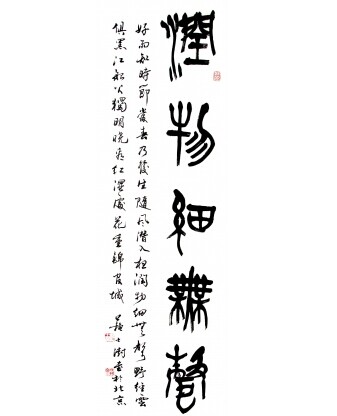 潤物細無聲
好雨知時節當春乃發生隨風潛入夜潤物細無聲野徑雲
俱黑江船火獨明曉看紅濕處花重錦官城 書於北京